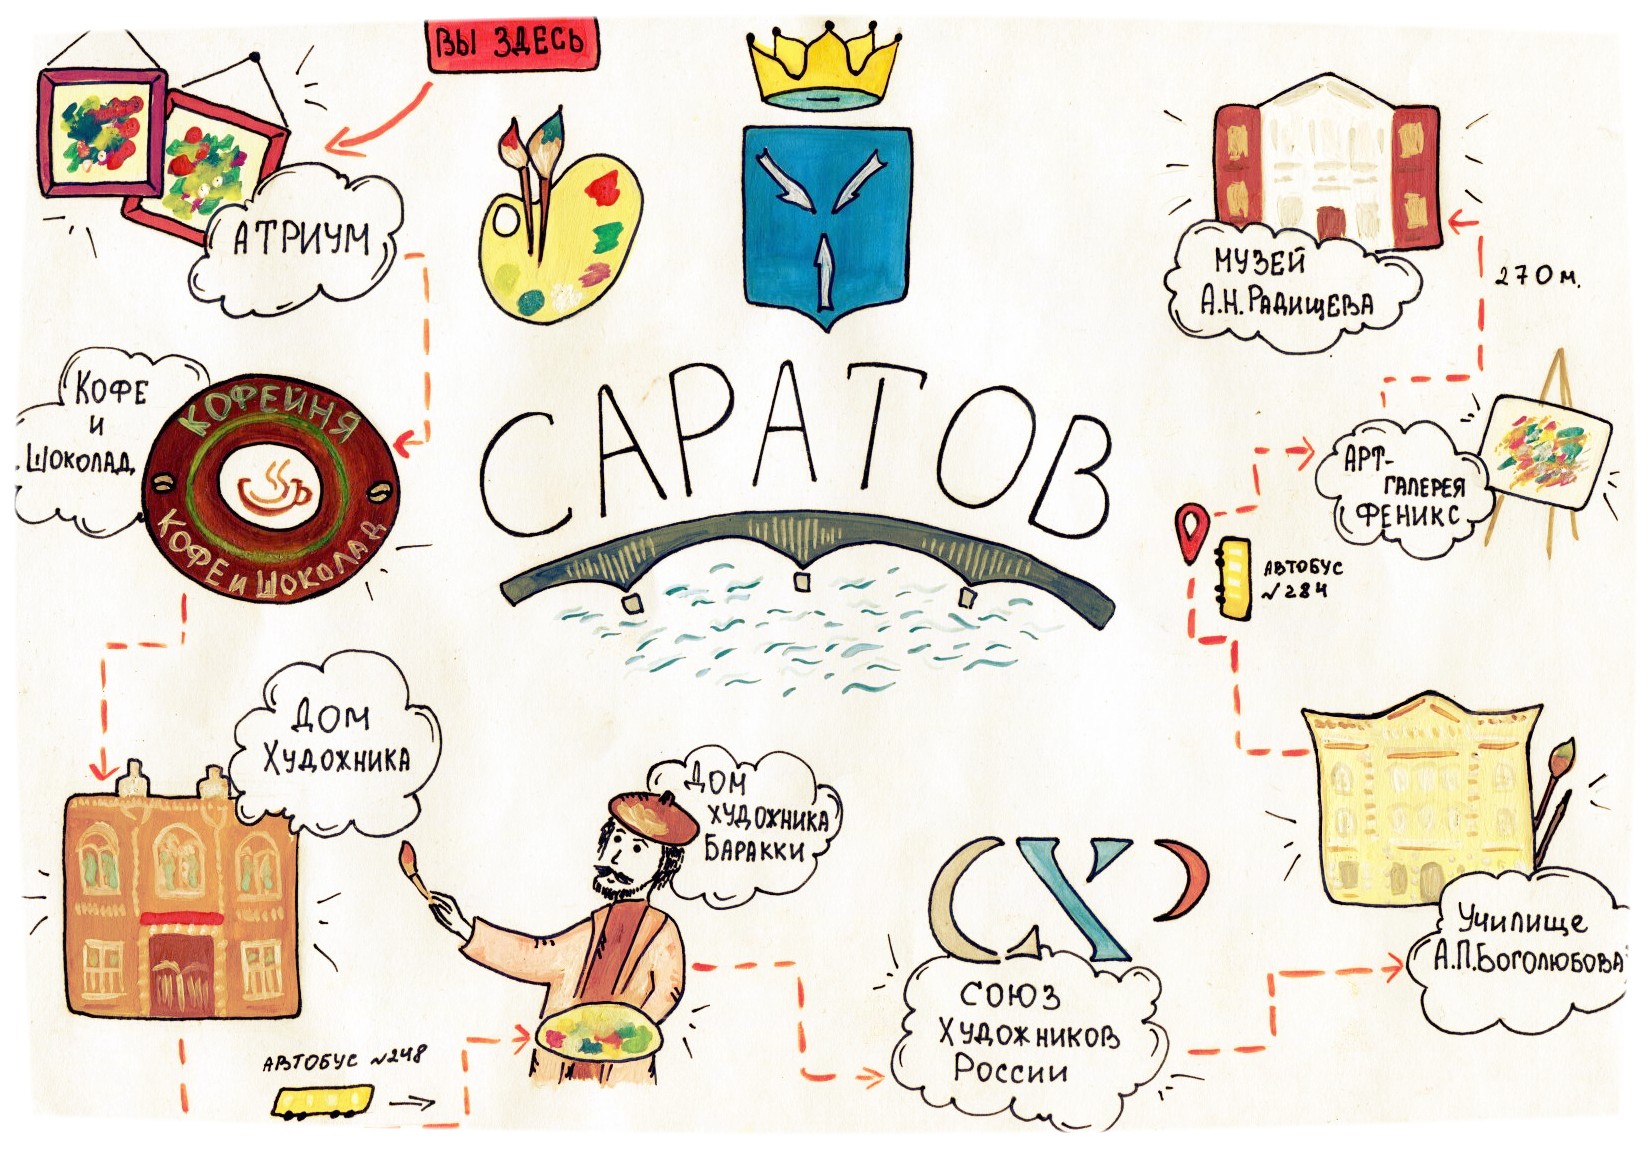 ВЫ ЗДЕСЬ
АТРИУМ
КОФЕ
И
ШОКОЛАД
КОФЕЙНЯ
КОФЕ И ШОКОЛАД
ДОМ
ХУДОЖНИКА
АВТОБУС №248
ДОМ
ХУДОЖНИКА
БАРАККИ
САРАТОВ
СХ
СОЮЗ
ХУДОЖНИКОВ
РОССИИ
УЧИЛИЩЕ
А.П.БОГОЛЮБОВА
АВТОБУС
№284
АРТ-
ГАЛЕРЕЯ
ФЕНИКС
270 м.
МУЗЕЙ
А.Н.РАДИЩЕВА